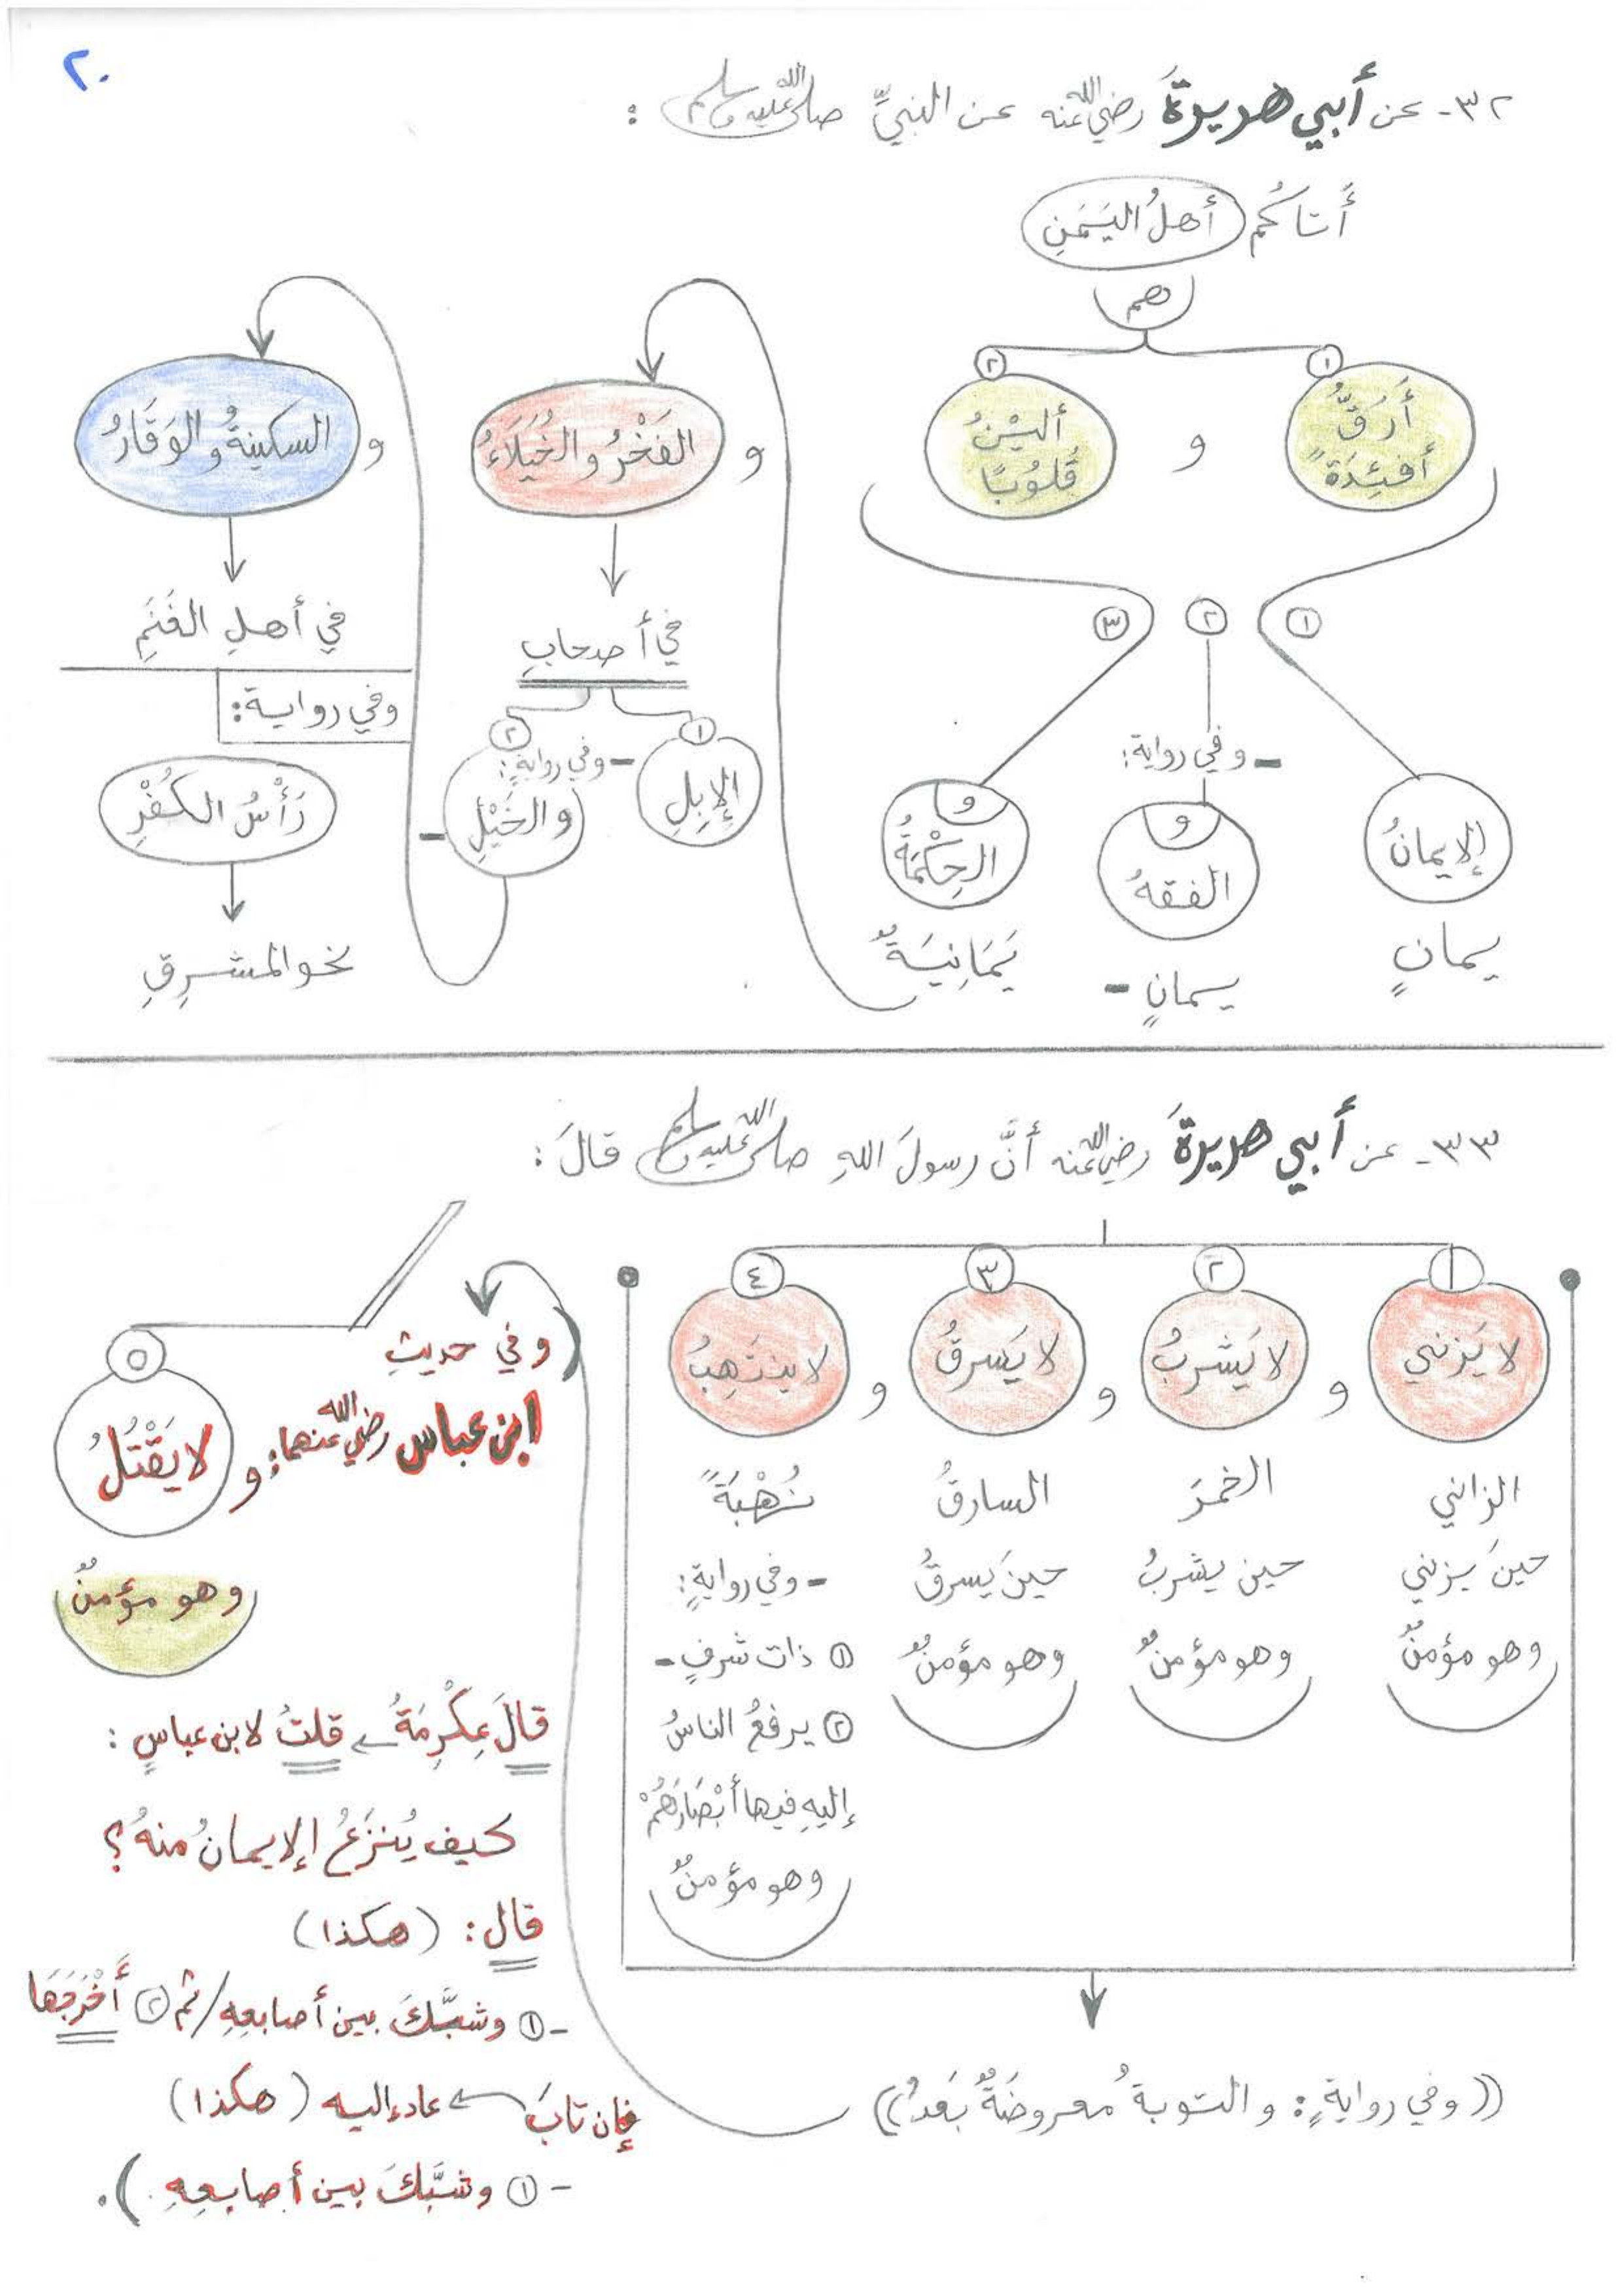 ٢٠
٣٢- عن أبي هريرةَ رضي الله عنه عن النبيِّ صلى الله عليه وسلم :
أَتاكُم أهلُ اليَمَنِ
هم
١
أَرَقُّ أفئِدَةً
و
٢
أليَنُ قُلُوبًا
١
الإيمانُ
يمانٍ
٢
- وفي رواية:
و
الفقهُ
يمانٍ -
٣
و
الحِكْمَةُ
يَمَانِيَةٌ
و
الفَخْرُ والخُيَلَاءُ
في أصحابِ
١
الإِبِلِ
٢
- وفي روايةٍ:
والخَيْلِ -
و
السكينةُ والوَقَارُ
في أهلِ الغَنَمِ
وفي رواية:
رَأْسُ الكُفْرِ
نحو المشرِقِ
٣٣- عن أبي هريرةَ رضي الله عنه أنَّ رسولَ اللهِ صلى الله عليه وسلم قالَ:
١
لا يَزني
الزاني
حينَ يزني
وهو مؤمنٌ
و
٢
لا يَشربُ
الخمرَ
حين يشربُ
وهو مؤمنٌ
و
٣
لا يَسرقُ
السارقُ
حينَ يسرقُ
وهو مؤمنٌ
و
٤
لا ينتَهِبُ
نُهْبَةً
- وفي روايةٍ:
١ ذات شرفٍ -
٢ يرفعُ الناسُ
إليهِ فيها أَبْصَارَهُمْ
وهو مؤمنٌ
((وفي روايةٍ: والتوبةُ معروضَةٌ بَعدُ))
(وفي حديثِ
ابن عباس رضي الله عنهما: و
٥
لا يَقْتُلُ
وهو مؤمنٌ
قالَ عِكْرِمَةُ قلتُ لابن عباسٍ :
كيف يُنزَعُ الإيمانُ منهُ؟
قال: (هكذا)
- ١ وشبَّكَ بين أصابعِهِ / ثم ٢ أَخْرَجَها
فإن تابَ عاد إليه (هكذا)
- ١ وشبَّكَ بين أصابعِهِ ).